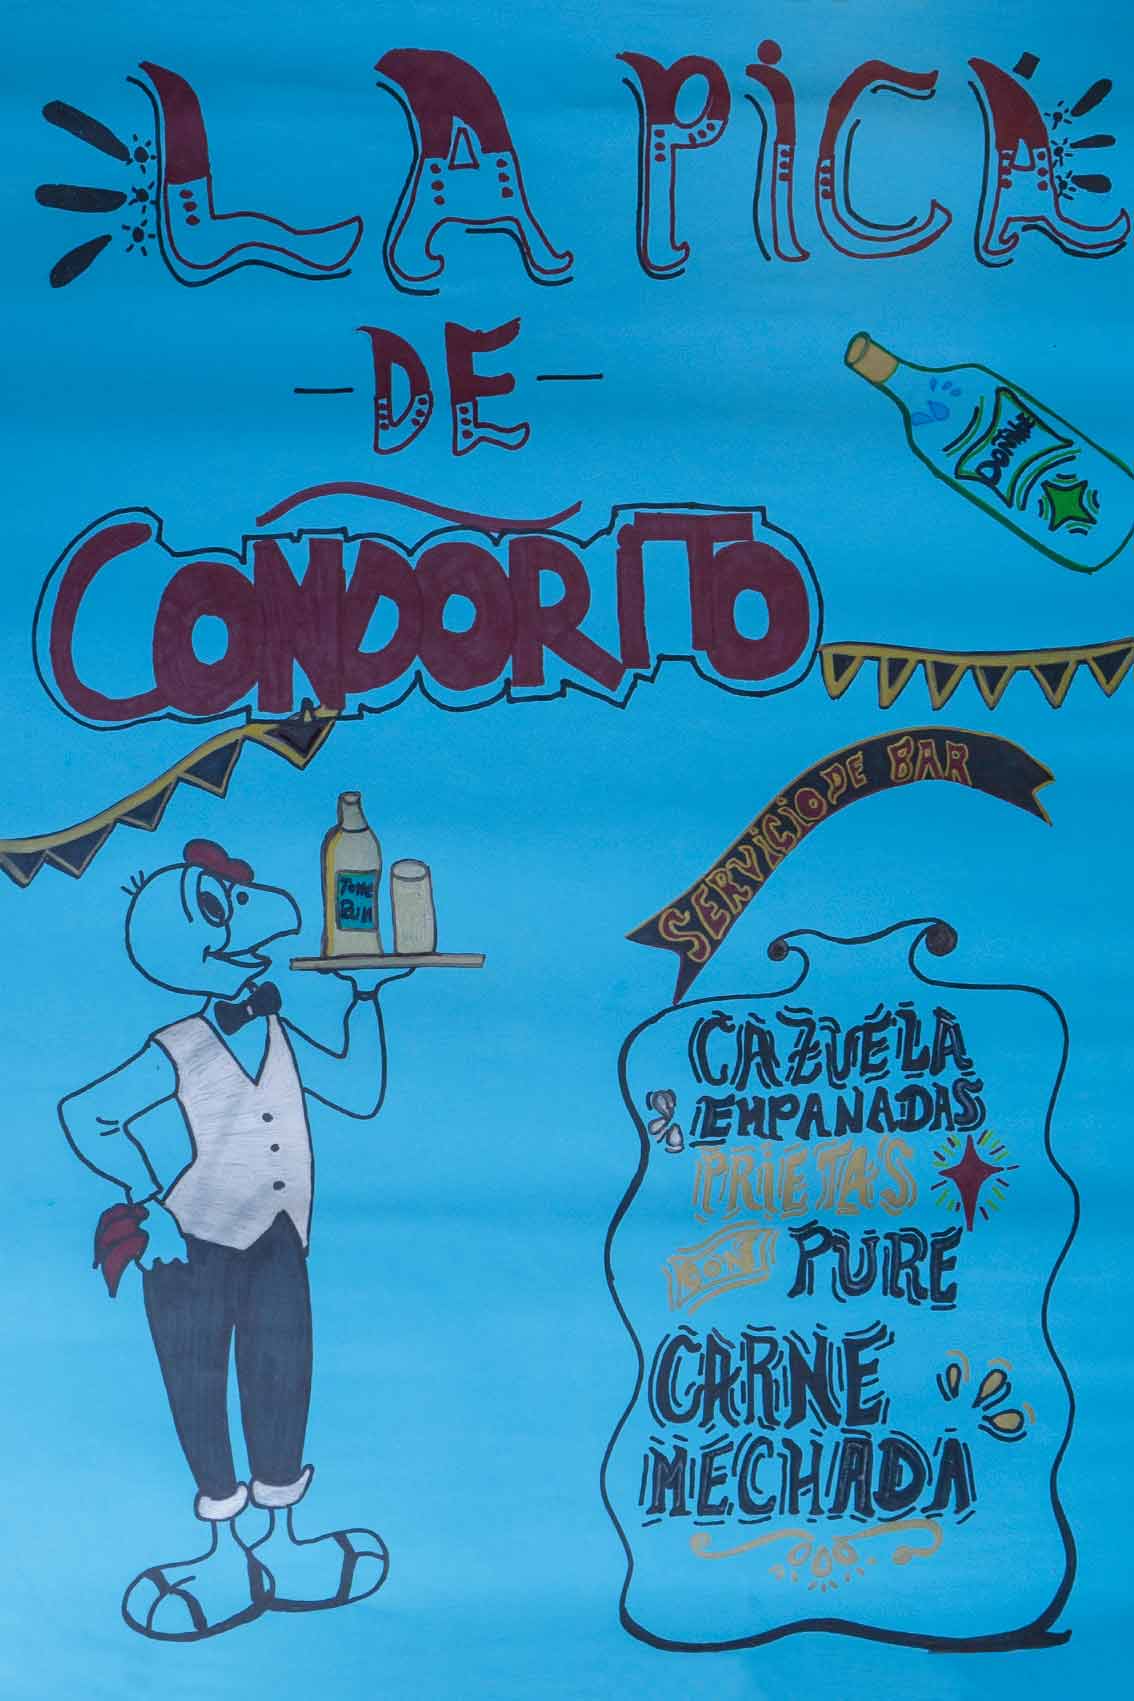 LA PiCA
DE
COÑDORITO
DOÑIHUE
SERViCiO DE BAR
TOME
PUM
CAZUELA
EMPANADAS
PRIETAS
CON PURE
CARNE
MECHADA